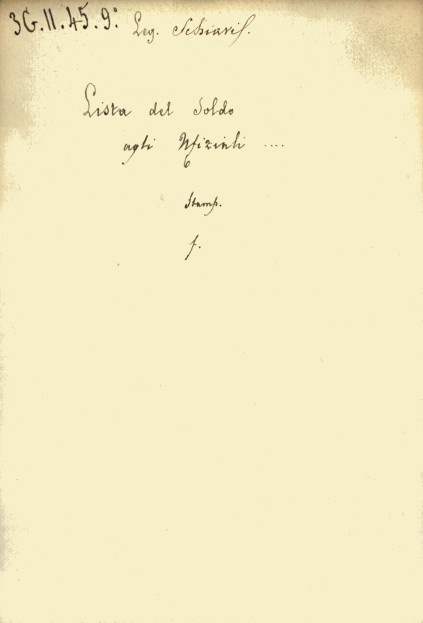 3G.11.45.9.° Leg. Schiavis.
Lista del Soldo
agli Ufiziali ....
Stamp.
f.